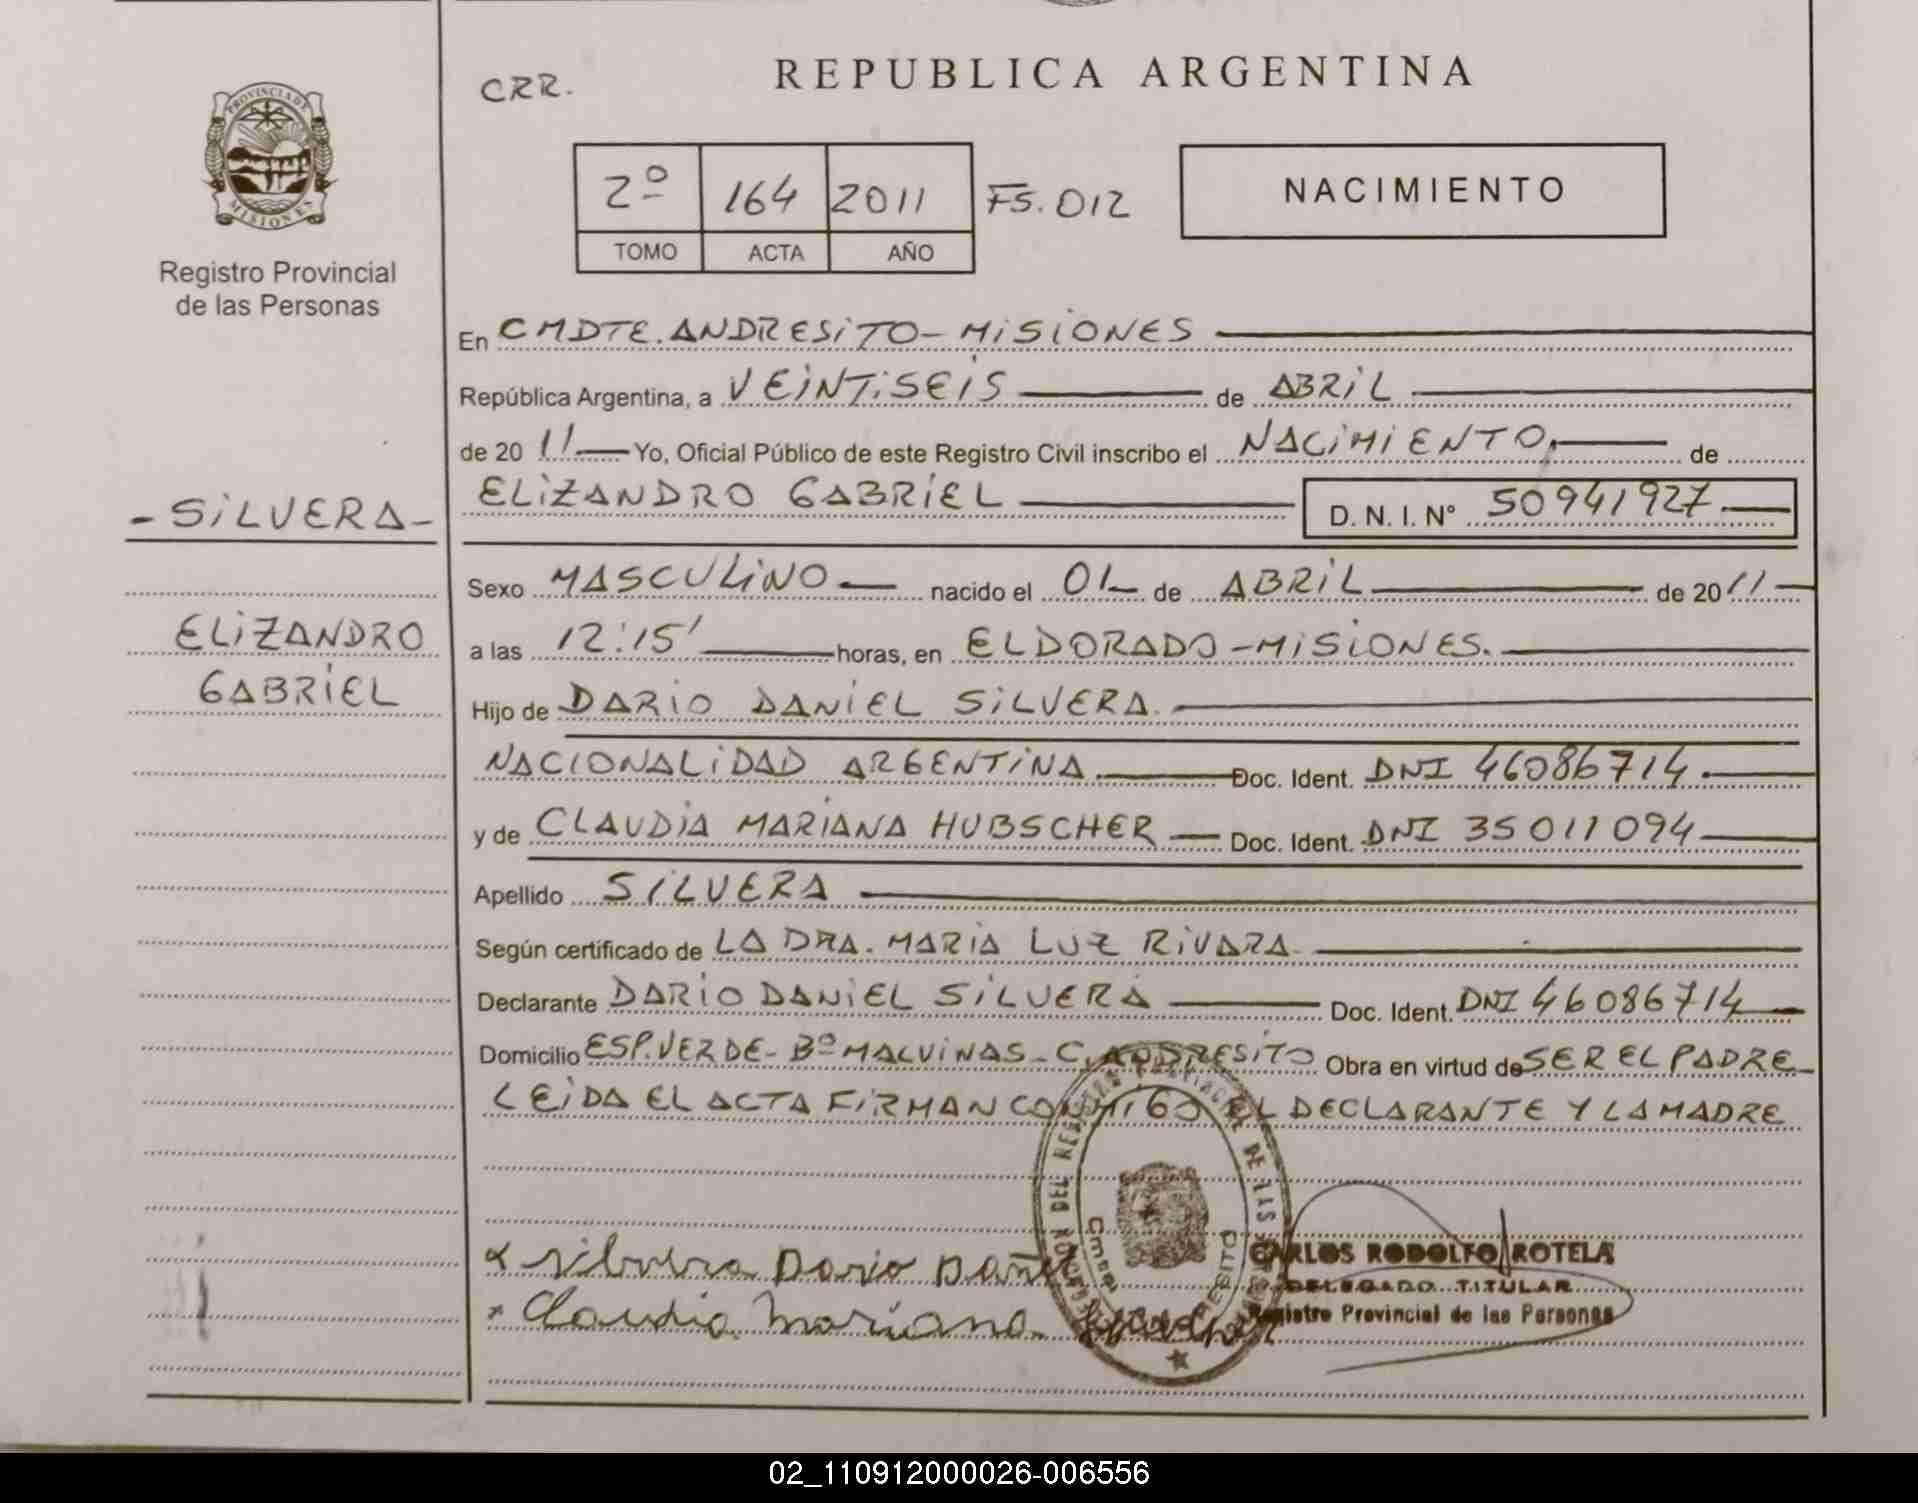 CRR.
REPUBLICA ARGENTINA
PROVINCIA DE
MISIONES
Registro Provincial
de las Personas
2º 164 2011 FS. 012
TOMO ACTA AÑO
NACIMIENTO
En CMDTE. ANDRESITO - MISIONES
República Argentina, a VEINTISEIS de ABRIL
de 20 11 Yo, Oficial Público de este Registro Civil inscribo el NACIMIENTO, de
ELIZANDRO GABRIEL D. N. I. N° 50941927
- SILVERA -
Sexo MASCULINO nacido el 01 de ABRIL de 20 11
ELIZANDRO
GABRIEL
a las 12:15' horas, en ELDORADO - MISIONES.
Hijo de DARIO DANIEL SILVERA.
NACIONALIDAD ARGENTINA. Doc. Ident. DNI 46086714.
y de CLAUDIA MARIANA HUBSCHER Doc. Ident. DNI 35011094
Apellido SILVERA
Según certificado de LA DRA. MARIA LUZ RIVARA
Declarante DARIO DANIEL SILVERA Doc. Ident. DNI 46086714
Domicilio ESP. VERDE - Bº MALVINAS - C. ANDRESITO Obra en virtud de SER EL PADRE
LEIDA EL ACTA FIRMAN CONMIGO EL DECLARANTE Y LA MADRE
Dario
Claudia Mariana
CARLOS RODOLFO ROTELA
DELEGADO TITULAR
Registro Provincial de las Personas
02_110912000026-006556